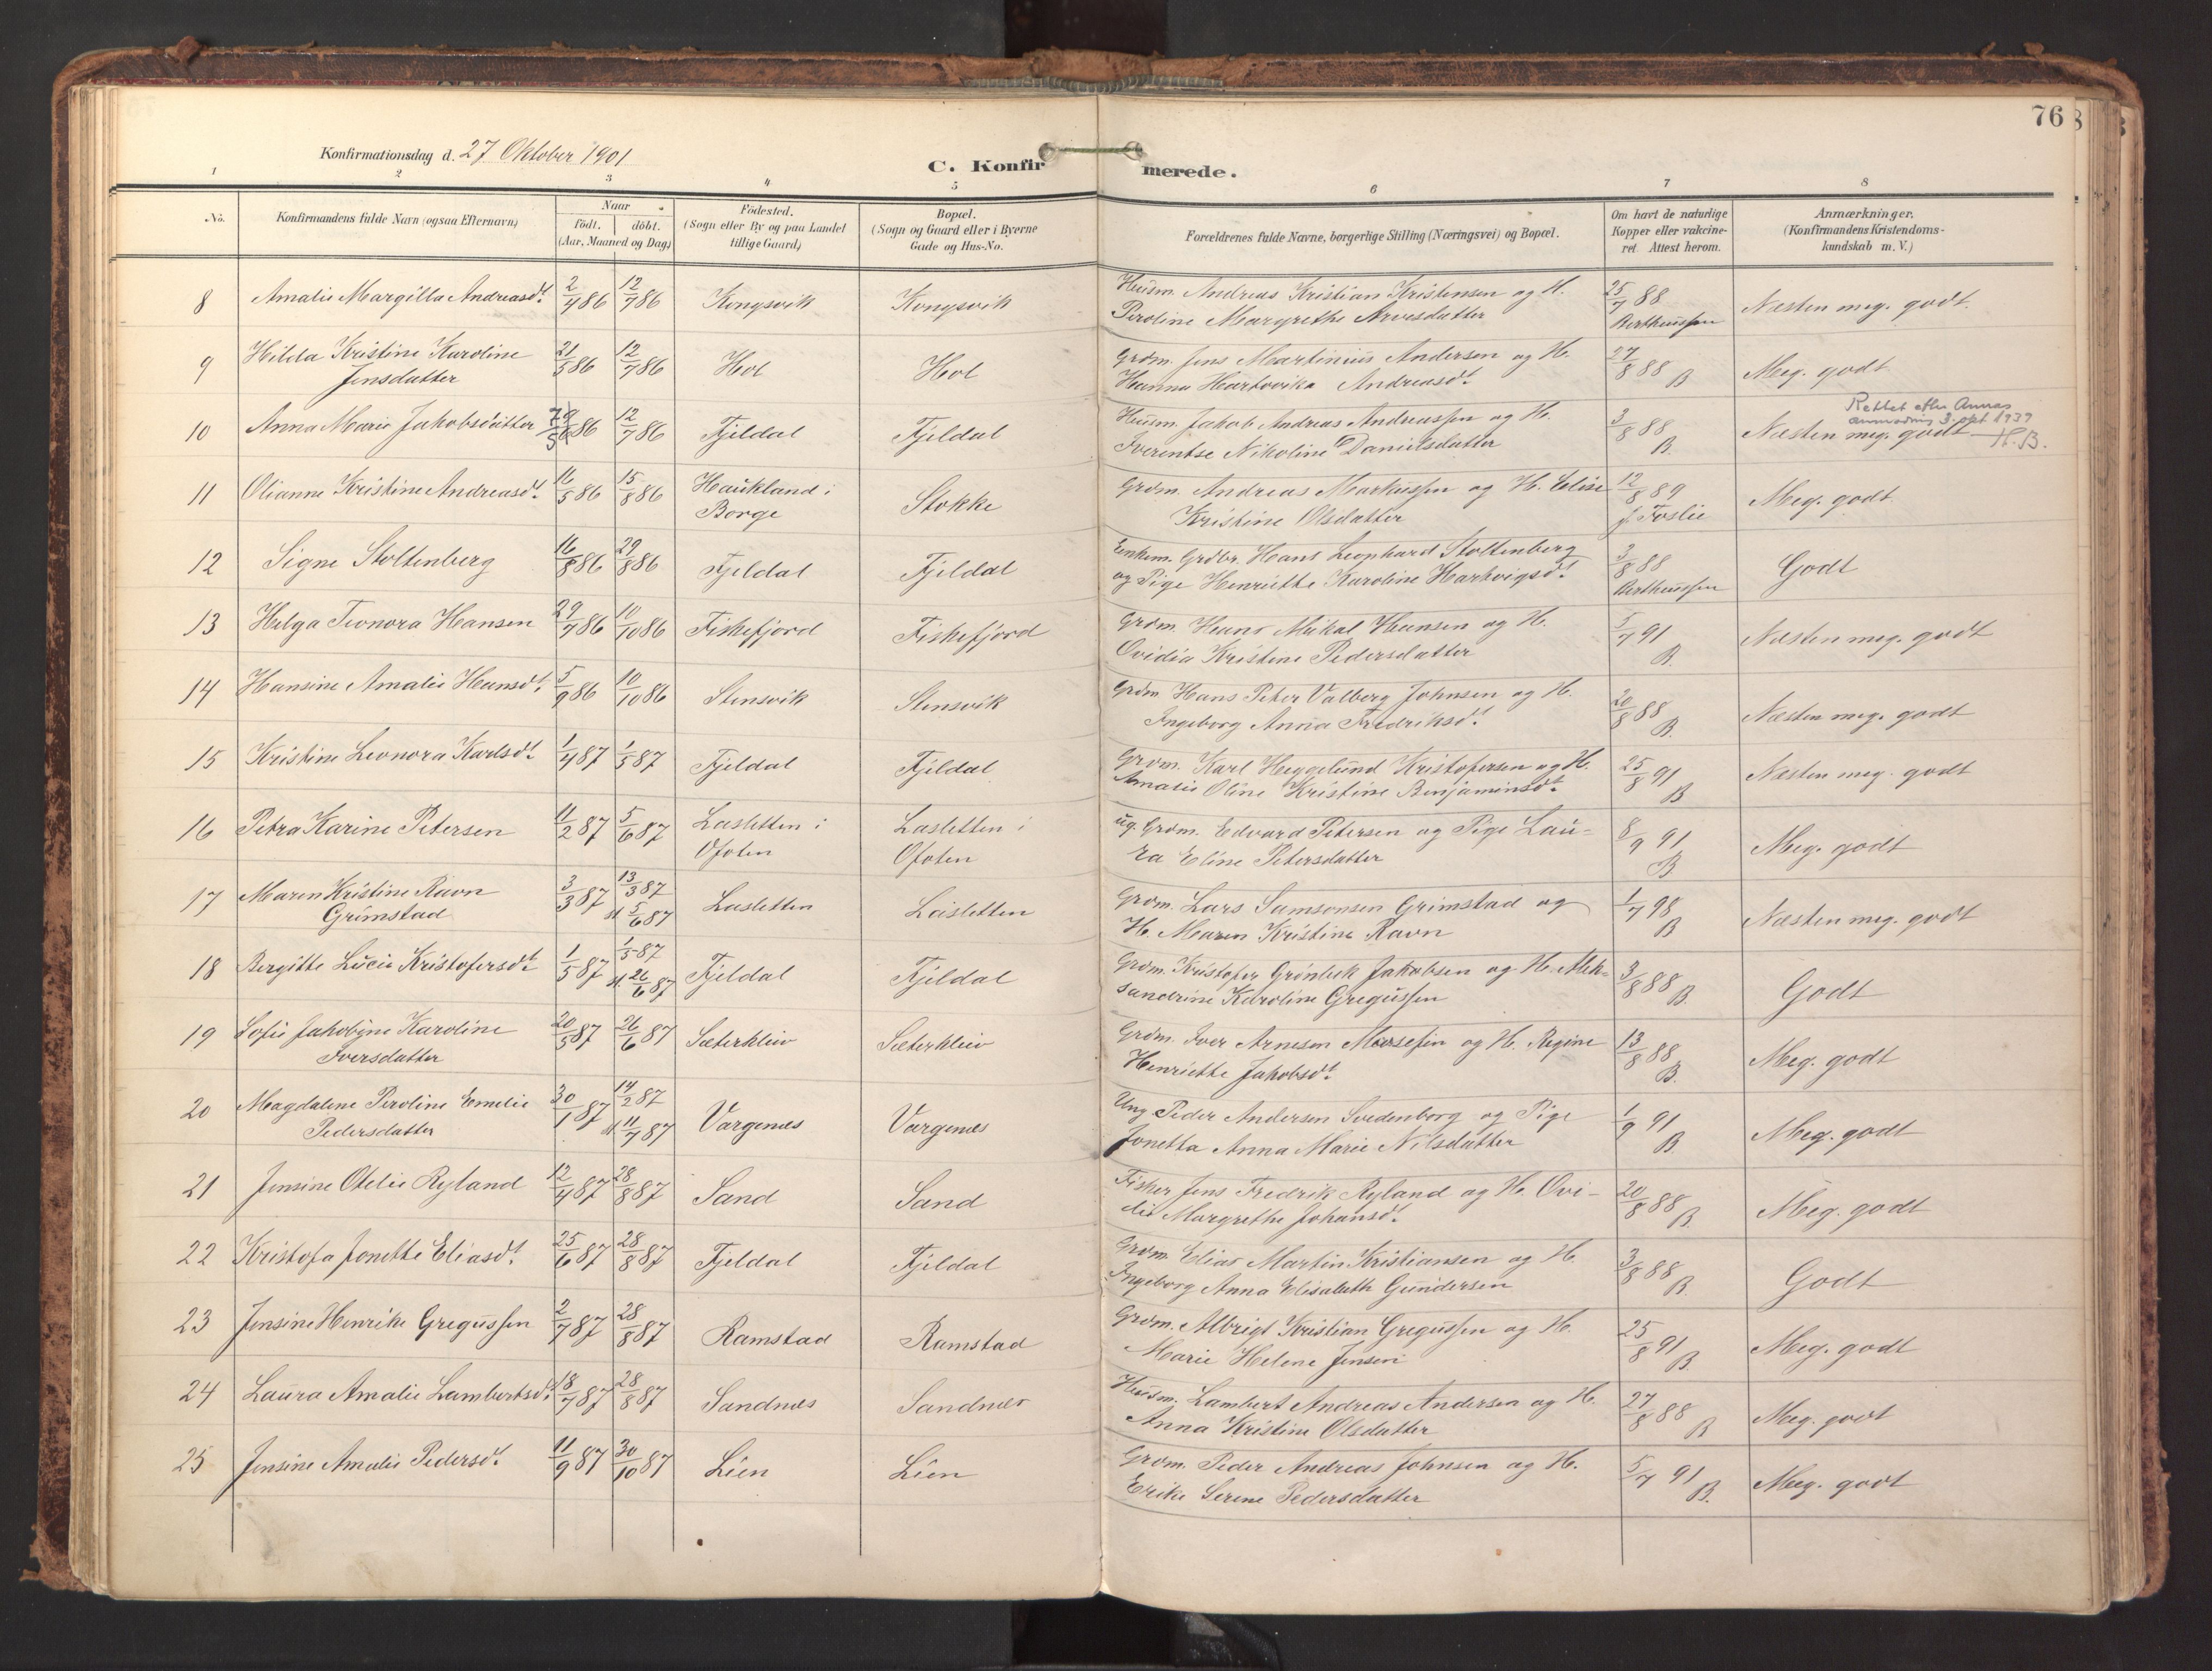 76
Konfirmationsdag d. 27 Oktober 1901
C. Konfirmerede.
1 2 3 4 5 6 7 8
No.
Konfirmandens fulde Navn (ogsaa Efternavn)
Naar
født. døbt.
(Aar, Maaned og Dag)
Fødested.
(Sogn eller By og paa Landet
tillige Gaard)
Bopæl.
(Sogn og Gaard eller i Byerne
Gade og Hus-No.
Forældrenes fulde Navne, borgerlige Stilling (Næringsvei) og Bopæl.
Om havt de naturlige
Kopper eller vakcine-
ret Attest herom.
Anmærkninger.
(Konfirmandens Kristendoms-
kundskab m. V.)
8 Amalie Margilla Andreasdt. 2/4 86 12/7 86 Kongsvik Kongsvik Husm. Andreas Kristian Kristensen og H. 25/7 88 Næsten meg. godt.
Peroline Margrethe Arvesdatter Bertheussen
9 Hilda Kristine Karoline 21/5 86 12/7 86 Hol Hol Grdm. Jens Martinius Andersen og H. 27/8 88 Meg. godt
Jensdatter Hanna Hartvika Andreasdt. B
Rettet efter Annas
anmodning 3. okt 1939
10 Anna Marie Jakobsdatter 7/5 86 12/7 86 Fjeldal Fjeldal Husm. Jakob Andreas Andreassen og H. 3/8 88 Næsten meg. godt H.B.
Iverentse Nikoline Danielsdatter B.
11 Olianne Kristine Andreasdt. 16/5 86 15/8 86 Haukland i Stokke Grdm. Andreas Markussen og H. Elise 12/8 89 Meg. godt
Borge Kristine Olsdatter J. Foslie
12 Signe Stoltenberg 16/8 86 29/8 86 Fjeldal Fjeldal Enkem. Grdbr. Hans Leonhard Stoltenberg 3/8 88 Godt
og Pige Henriette Karoline Hartvigsdt. Bertheussen
13 Helga Teonora Hansen 29/7 86 10/10 86 Fiskefjord Fiskefjord Grdm. Hans Mikal Hansen og H. 5/7 91 Næsten meg. godt
Ovidia Kristine Pedersdatter B.
14 Hansine Amalie Hansdt. 5/9 86 10/10 86 Stensvik Stensvik Grdm. Hans Peter Valberg Johnsen og H. 20/8 88 Næsten meg. godt
Ingeborg Anna Fredriksdt. B.
15 Kristine Leonora Karlsdt. 1/4 87 1/5 87 Fjeldal Fjeldal Grdm. Karl Heggelund Kristofersen og H. 25/8 91 Næsten meg. godt
Amalie Oline Kristine Benjaminsdt. B
16 Petra Karine Petersen 11/2 87 5/6 87 Lasletten i Lasletten i ug. Grdm. Edvard Petersen og Pige Lau- 8/9 91 Meg. godt
Ofoten Ofoten ra Eline Petersdatter B
17 Maren Kristine Ravn 3/3 87 13/3 87 Lasletten Lasletten Grdm. Lars Samsonsen Grimstad og 1/7 98 Næsten meg. godt
Grimstad st. 5/6 87 H. Maren Kristine Ravn B
18 Bergitte Lucie Kristofersdt. 1/5 87 1/5 87 Fjeldal Fjeldal Grdm. Kristofer Grønbek Jakobsen og H. Alek- 3/8 88 Godt
st. 26/6 87 sandrine Karoline Gregussen B.
19 Sofie Jakobine Karoline 20/5 87 26/6 87 Sæterkleiv Sæterkleiv Grdm. Iver Arnesen og H. Regine 13/8 88 Meg. godt
Iversdatter Henriette Jakobsdt. B.
20 Magdalene Peroline Emelie 30/1 87 14/2 87 Vargenæs Vargenæs Ung Peder Andersen Svedenborg og Pige 1/9 91 Meg. godt
Pedersdatter st. 11/7 87 Jonetta Anna Marie Nilsdatter B.
21 Jensine Otelie Ryland 12/4 87 28/8 87 Sand Sand Fisker Jens Fredrik Ryland og H. Ovi- 20/8 88 Meg. godt
die Margrethe Johansdt. B.
22 Kristofa Jonette Eliasdt. 25/6 87 28/8 87 Fjeldal Fjeldal Grdm. Elias Martin Kristiansen og H. 3/8 88 Godt
Ingeborg Anna Elisabeth Gundersen B.
23 Jensine Henrike Gregussen 2/7 87 28/8 87 Ramstad Ramstad Grdm. Albrigt Kristian Gregussen og H. 25/8 91 Meg. godt
Marie Helene Jensen B.
24 Laura Amalie Lambertsdt. 18/7 87 28/8 87 Sandnæs Sandnæs Husm. Lambert Andreas Andersen og H. 27/8 88 Meg. godt
Anna Kristine Olsdatter B
25 Jensine Amalie Pedersdt. 11/9 87 30/10 87 Lien Lien Grdm. Peder Andreas Johnsen og H. 5/7 91 Meg. godt
Erike Serine Pedersdatter B.